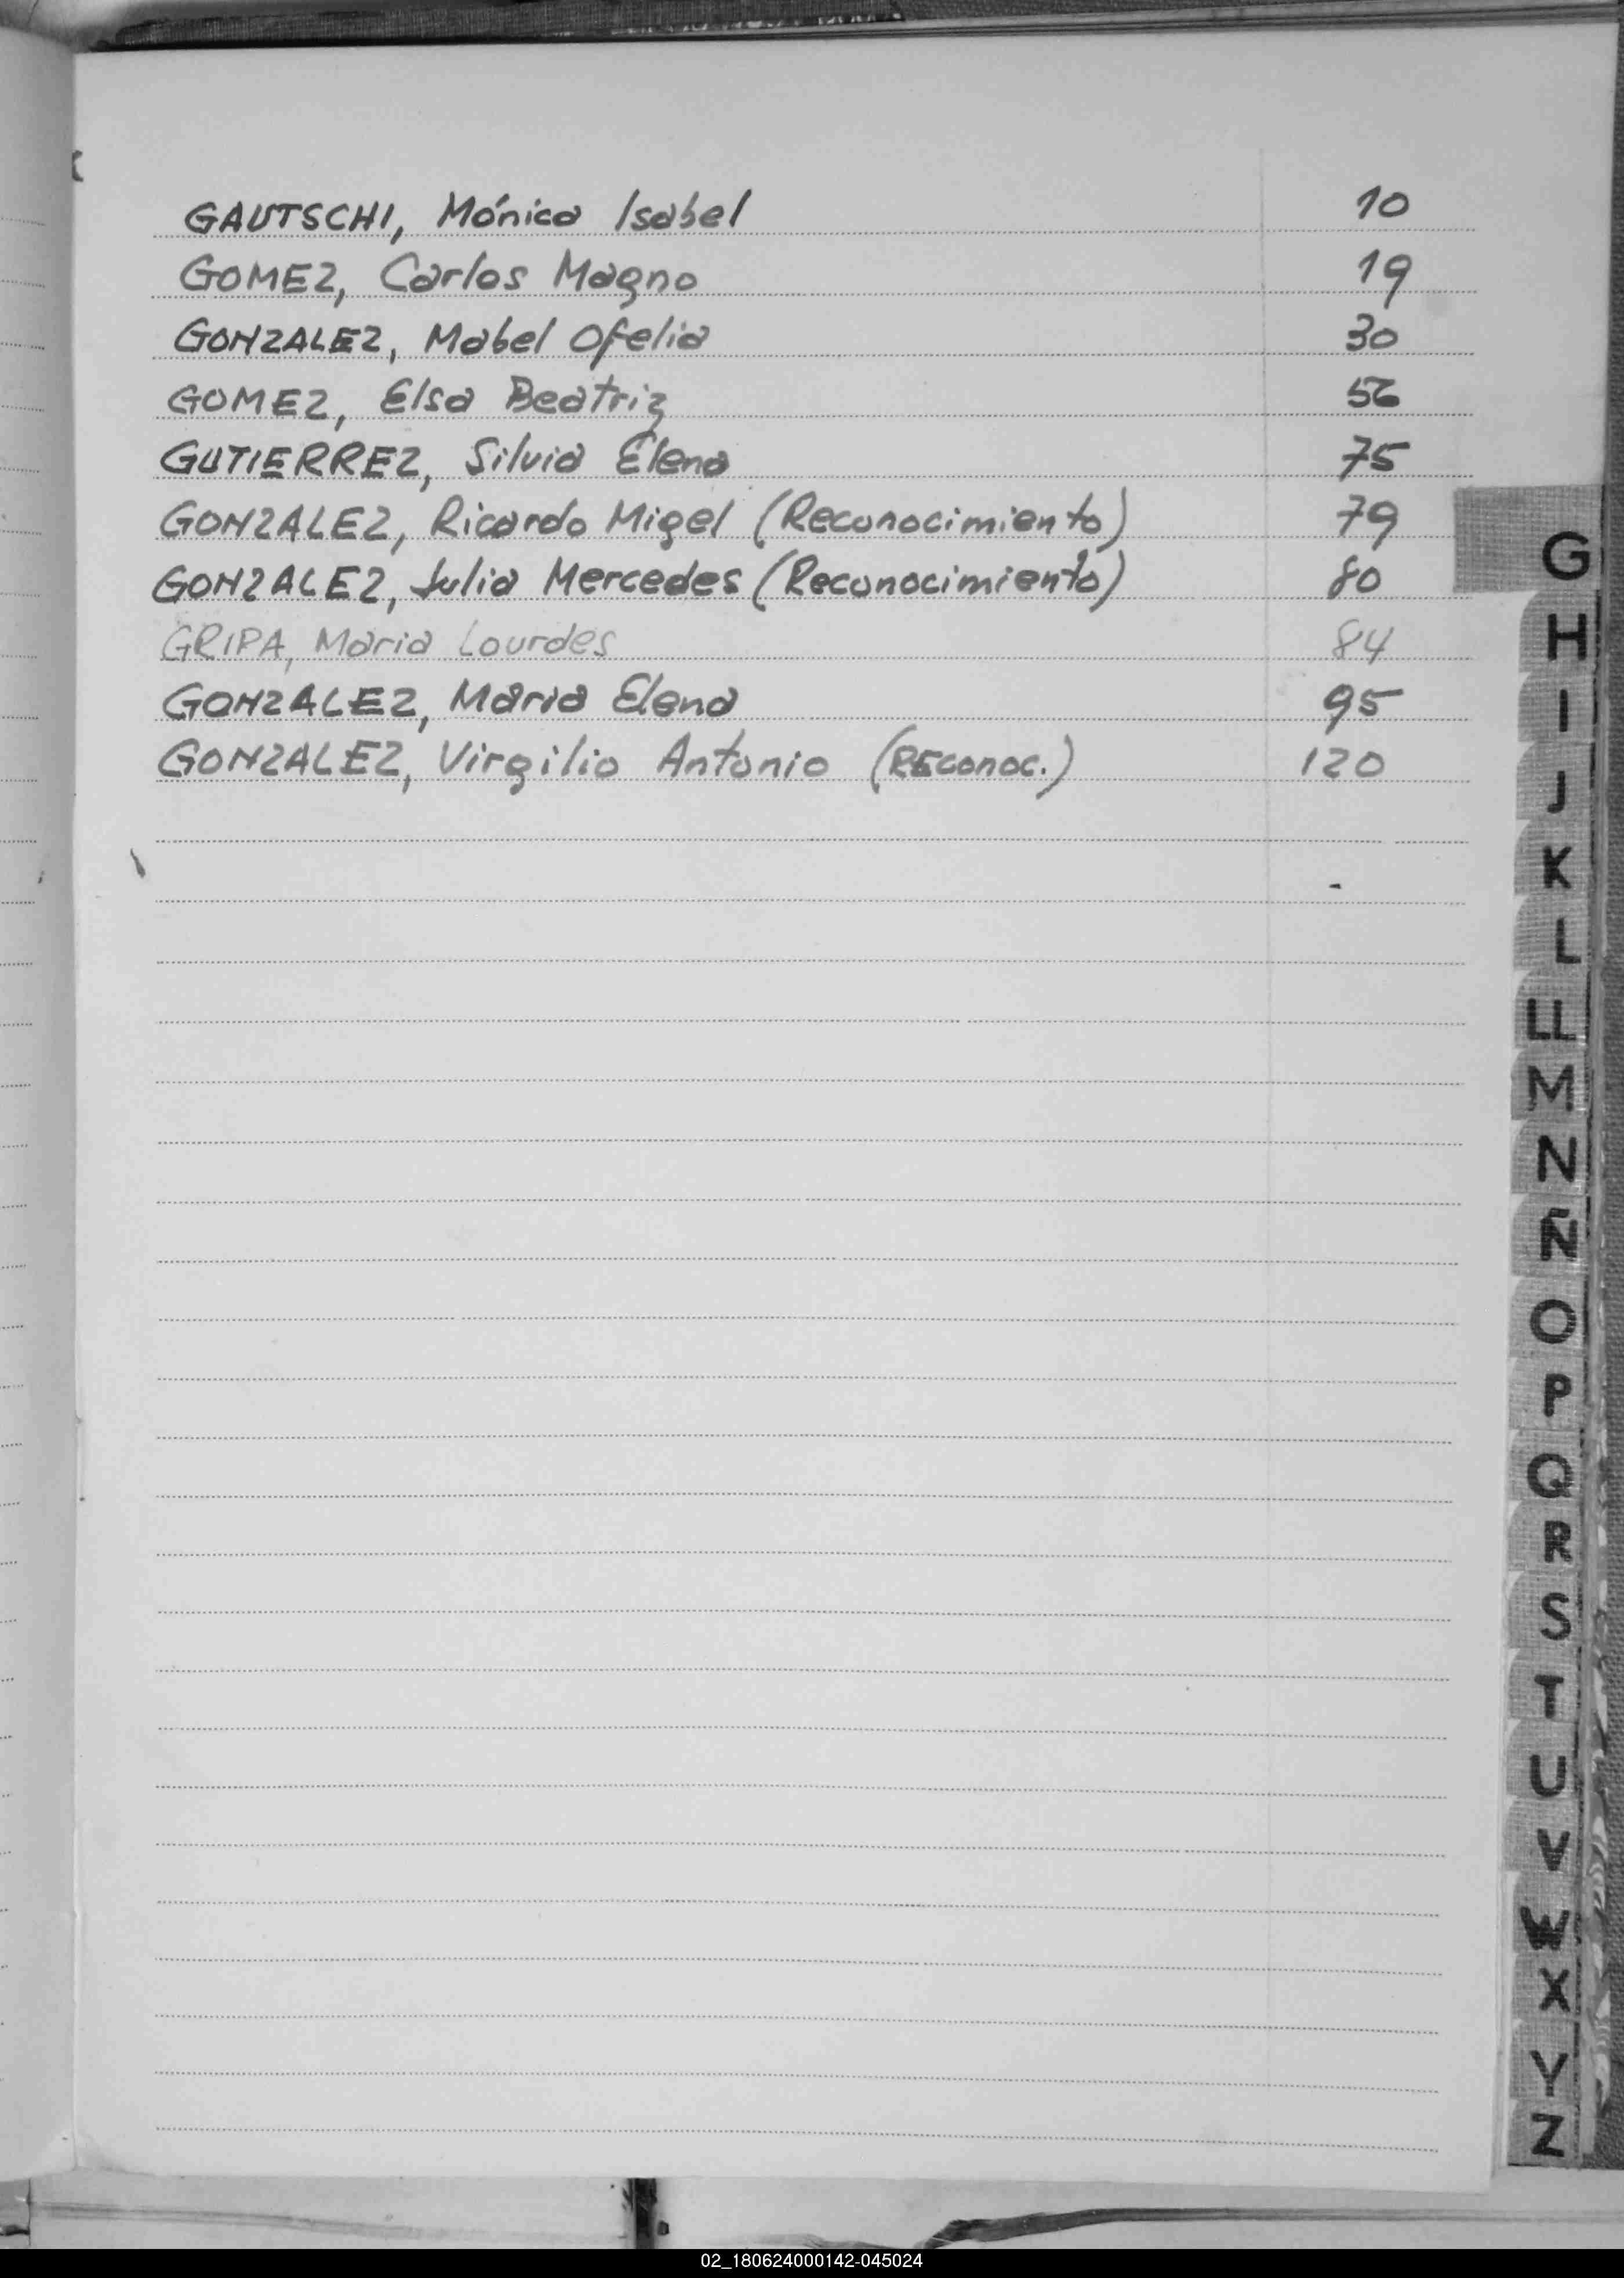 GAUTSCHI, Mónica Isabel 10
GOMEZ, Carlos Magno 19
GONZALEZ, Mabel Ofelia 30
GOMEZ, Elsa Beatriz 56
GUTIERREZ, Silvia Elena 75
GONZALEZ, Ricardo Migel (Reconocimiento) 79
GONZALEZ, Julia Mercedes (Reconocimiento) 80
GRIPA, Maria Lourdes 84
GONZALEZ, Maria Elena 95
GONZALEZ, Virgilio Antonio (REconoc.) 120
G
H
I
J
K
L
LL
M
N
Ñ
O
P
Q
R
S
T
U
V
W
X
Y
Z
02_180624000142-045024